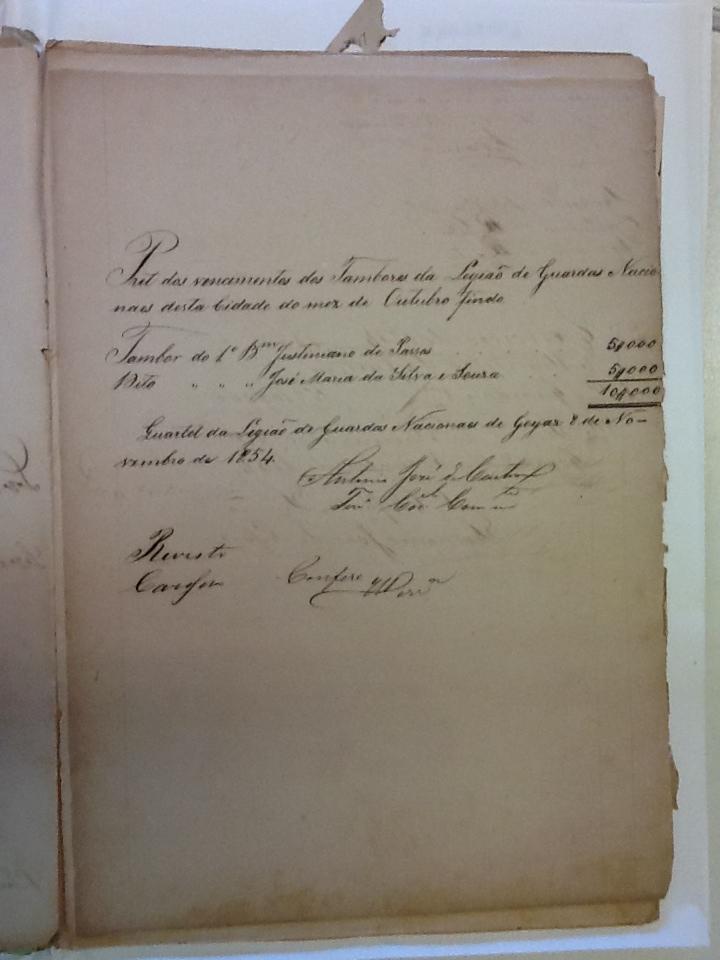 Pret dos vencimentos dos Tambores da Legião de Guardas Nacio-
naes desta Cidade do mez de Outubro findo
Tambor do 1º Bam Justiniano de Passos 5$000
Dito " " " José Maria da Silva e Souza 5$000
10$000
Quartel da Legião de Guardas Nacionaes de Goyaz 8 de No-
vembro de 1854.
Antonio José de Castro
Tene Cel Comte
Revisto
Confere